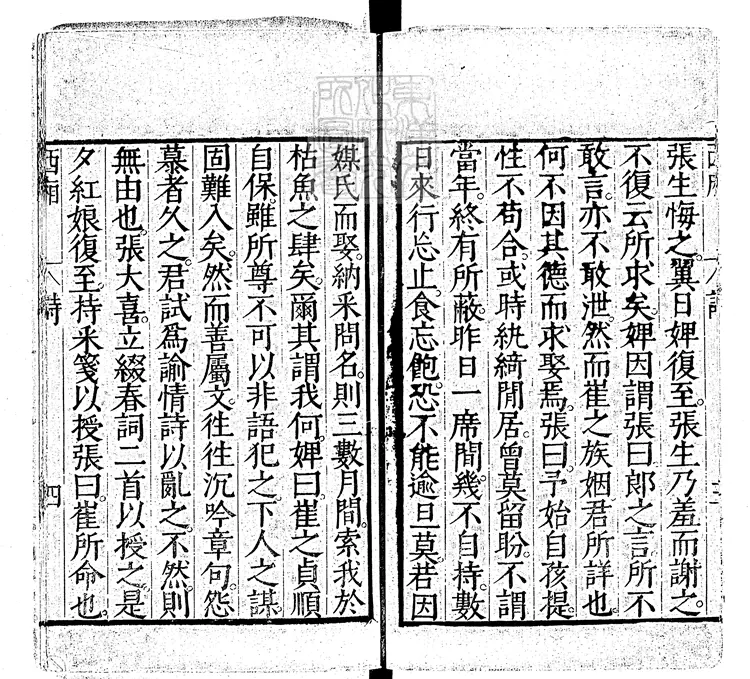 張生悔之。翼日婢復至。張生乃羞而謝之。
不復云所求矣。婢因謂張曰郎之言所不
敢言。亦不敢泄。然而崔之族姻君所詳也。
何不因其德而求娶焉。張曰予始自孩提。
性不苟合。或時紈綺閒居。曾莫留盼。不謂
當年。終有所蔽。昨日一席間。幾不自持。數
日來行忘止。食忘飽。恐不能逾旦莫。若因
媒氏而娶。納采問名。則三數月間。索我於
枯魚之肆矣。爾其謂我何。婢曰崔之貞順
自保。雖所尊不可以非語犯之。下人之謀。
固難入矣。然而善屬文。往往沉吟章句。怨
慕者久之。君試為諭情詩以亂之。不然。則
無由也。張大喜。立綴春詞二首以授之。是
夕紅娘復至。持采箋以授張曰。崔所命也。
西廂 詩 四